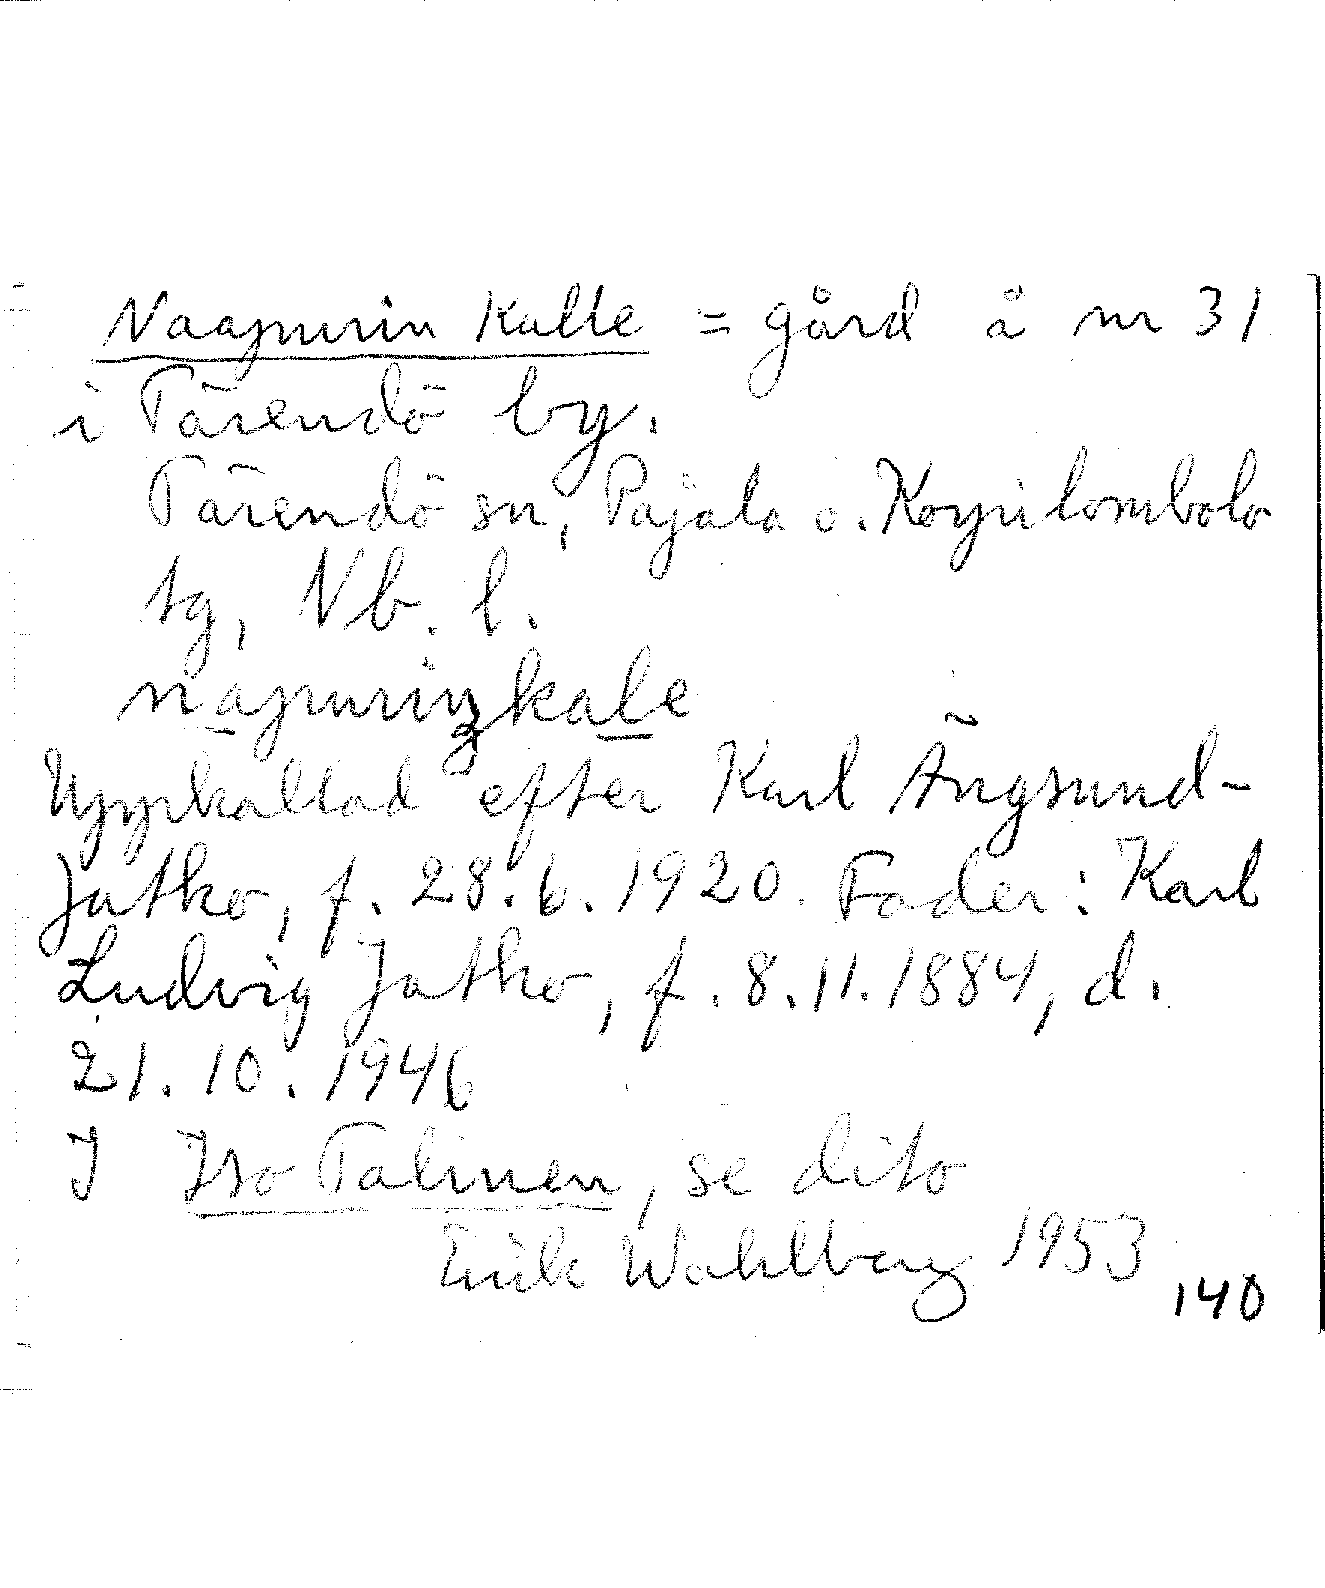 Naapurin Kalle = gård å nr 31
i Tärendö by.
Tärendö sn, Pajala o. Korpilombolo
tg, Nb. l.
nāpuriŋkale
Uppkallad efter Karl Ängsund-
Jatko, f. 28.6.1920. Fader: Karl
Ludvig Jatko, f. 8.11.1884, d.
21.10.1946
I Iso Talinen, se dito
Erik Wahlberg 1953
140